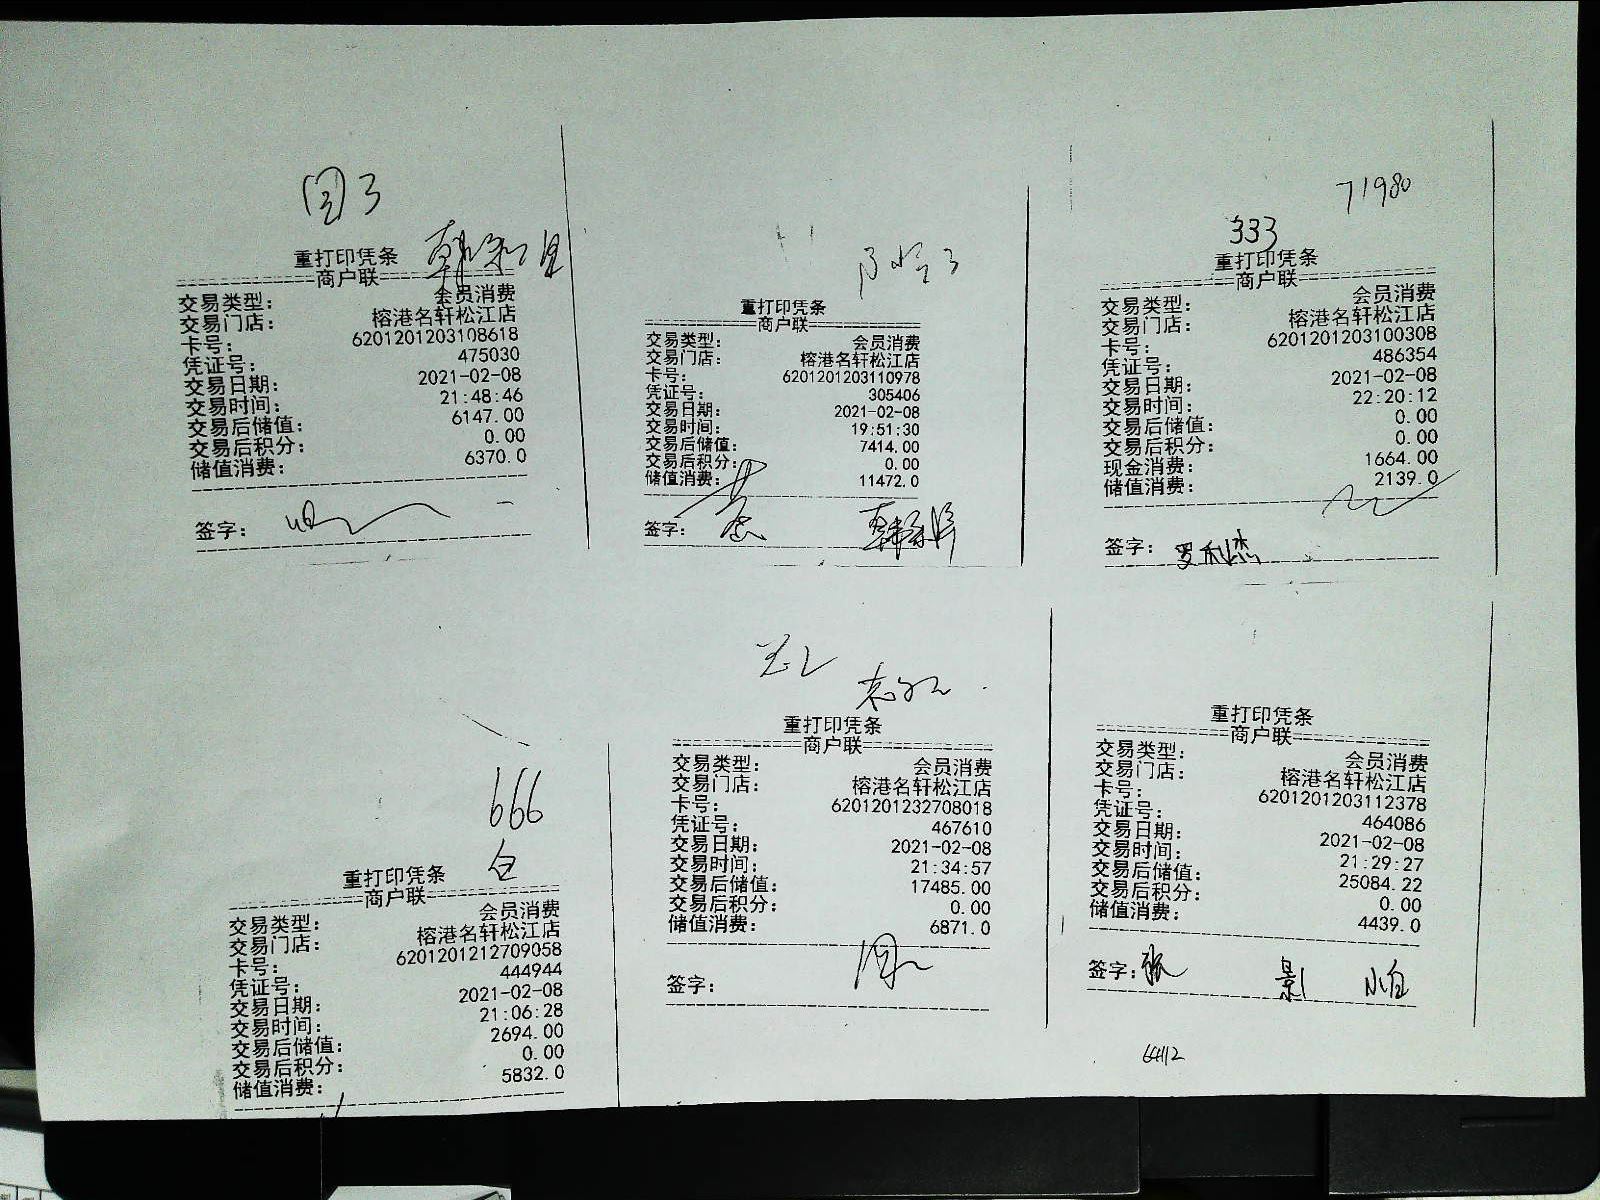 333
71980
重打印凭条
商户联
交易类型: 会员消费
交易门店: 榕港名轩松江店
卡号: 6201201203108618
凭证号: 475030
交易日期: 2021-02-08
交易时间: 21:48:46
交易后储值: 6147.00
交易后积分: 0.00
储值消费: 6370.0
签字:
重打印凭条
商户联
交易类型: 会员消费
交易门店: 榕港名轩松江店
卡号: 6201201203110978
凭证号: 305406
交易日期: 2021-02-08
交易时间: 19:51:30
交易后储值: 7414.00
交易后积分: 0.00
储值消费: 11472.0
签字:
重打印凭条
商户联
交易类型: 会员消费
交易门店: 榕港名轩松江店
卡号: 6201201203100308
凭证号: 486354
交易日期: 2021-02-08
交易时间: 22:20:12
交易后储值: 0.00
交易后积分: 0.00
现金消费: 1664.00
储值消费: 2139.0
签字:
666
白
重打印凭条
商户联
交易类型: 会员消费
交易门店: 榕港名轩松江店
卡号: 6201201212709058
凭证号: 444944
交易日期: 2021-02-08
交易时间: 21:06:28
交易后储值: 2694.00
交易后积分: 0.00
储值消费: 5832.0
重打印凭条
商户联
交易类型: 会员消费
交易门店: 榕港名轩松江店
卡号: 6201201232708018
凭证号: 467610
交易日期: 2021-02-08
交易时间: 21:34:57
交易后储值: 17485.00
交易后积分: 0.00
储值消费: 6871.0
签字:
重打印凭条
商户联
交易类型: 会员消费
交易门店: 榕港名轩松江店
卡号: 6201201203112378
凭证号: 464086
交易日期: 2021-02-08
交易时间: 21:29:27
交易后储值: 25084.22
交易后积分: 0.00
储值消费: 4439.0
签字: